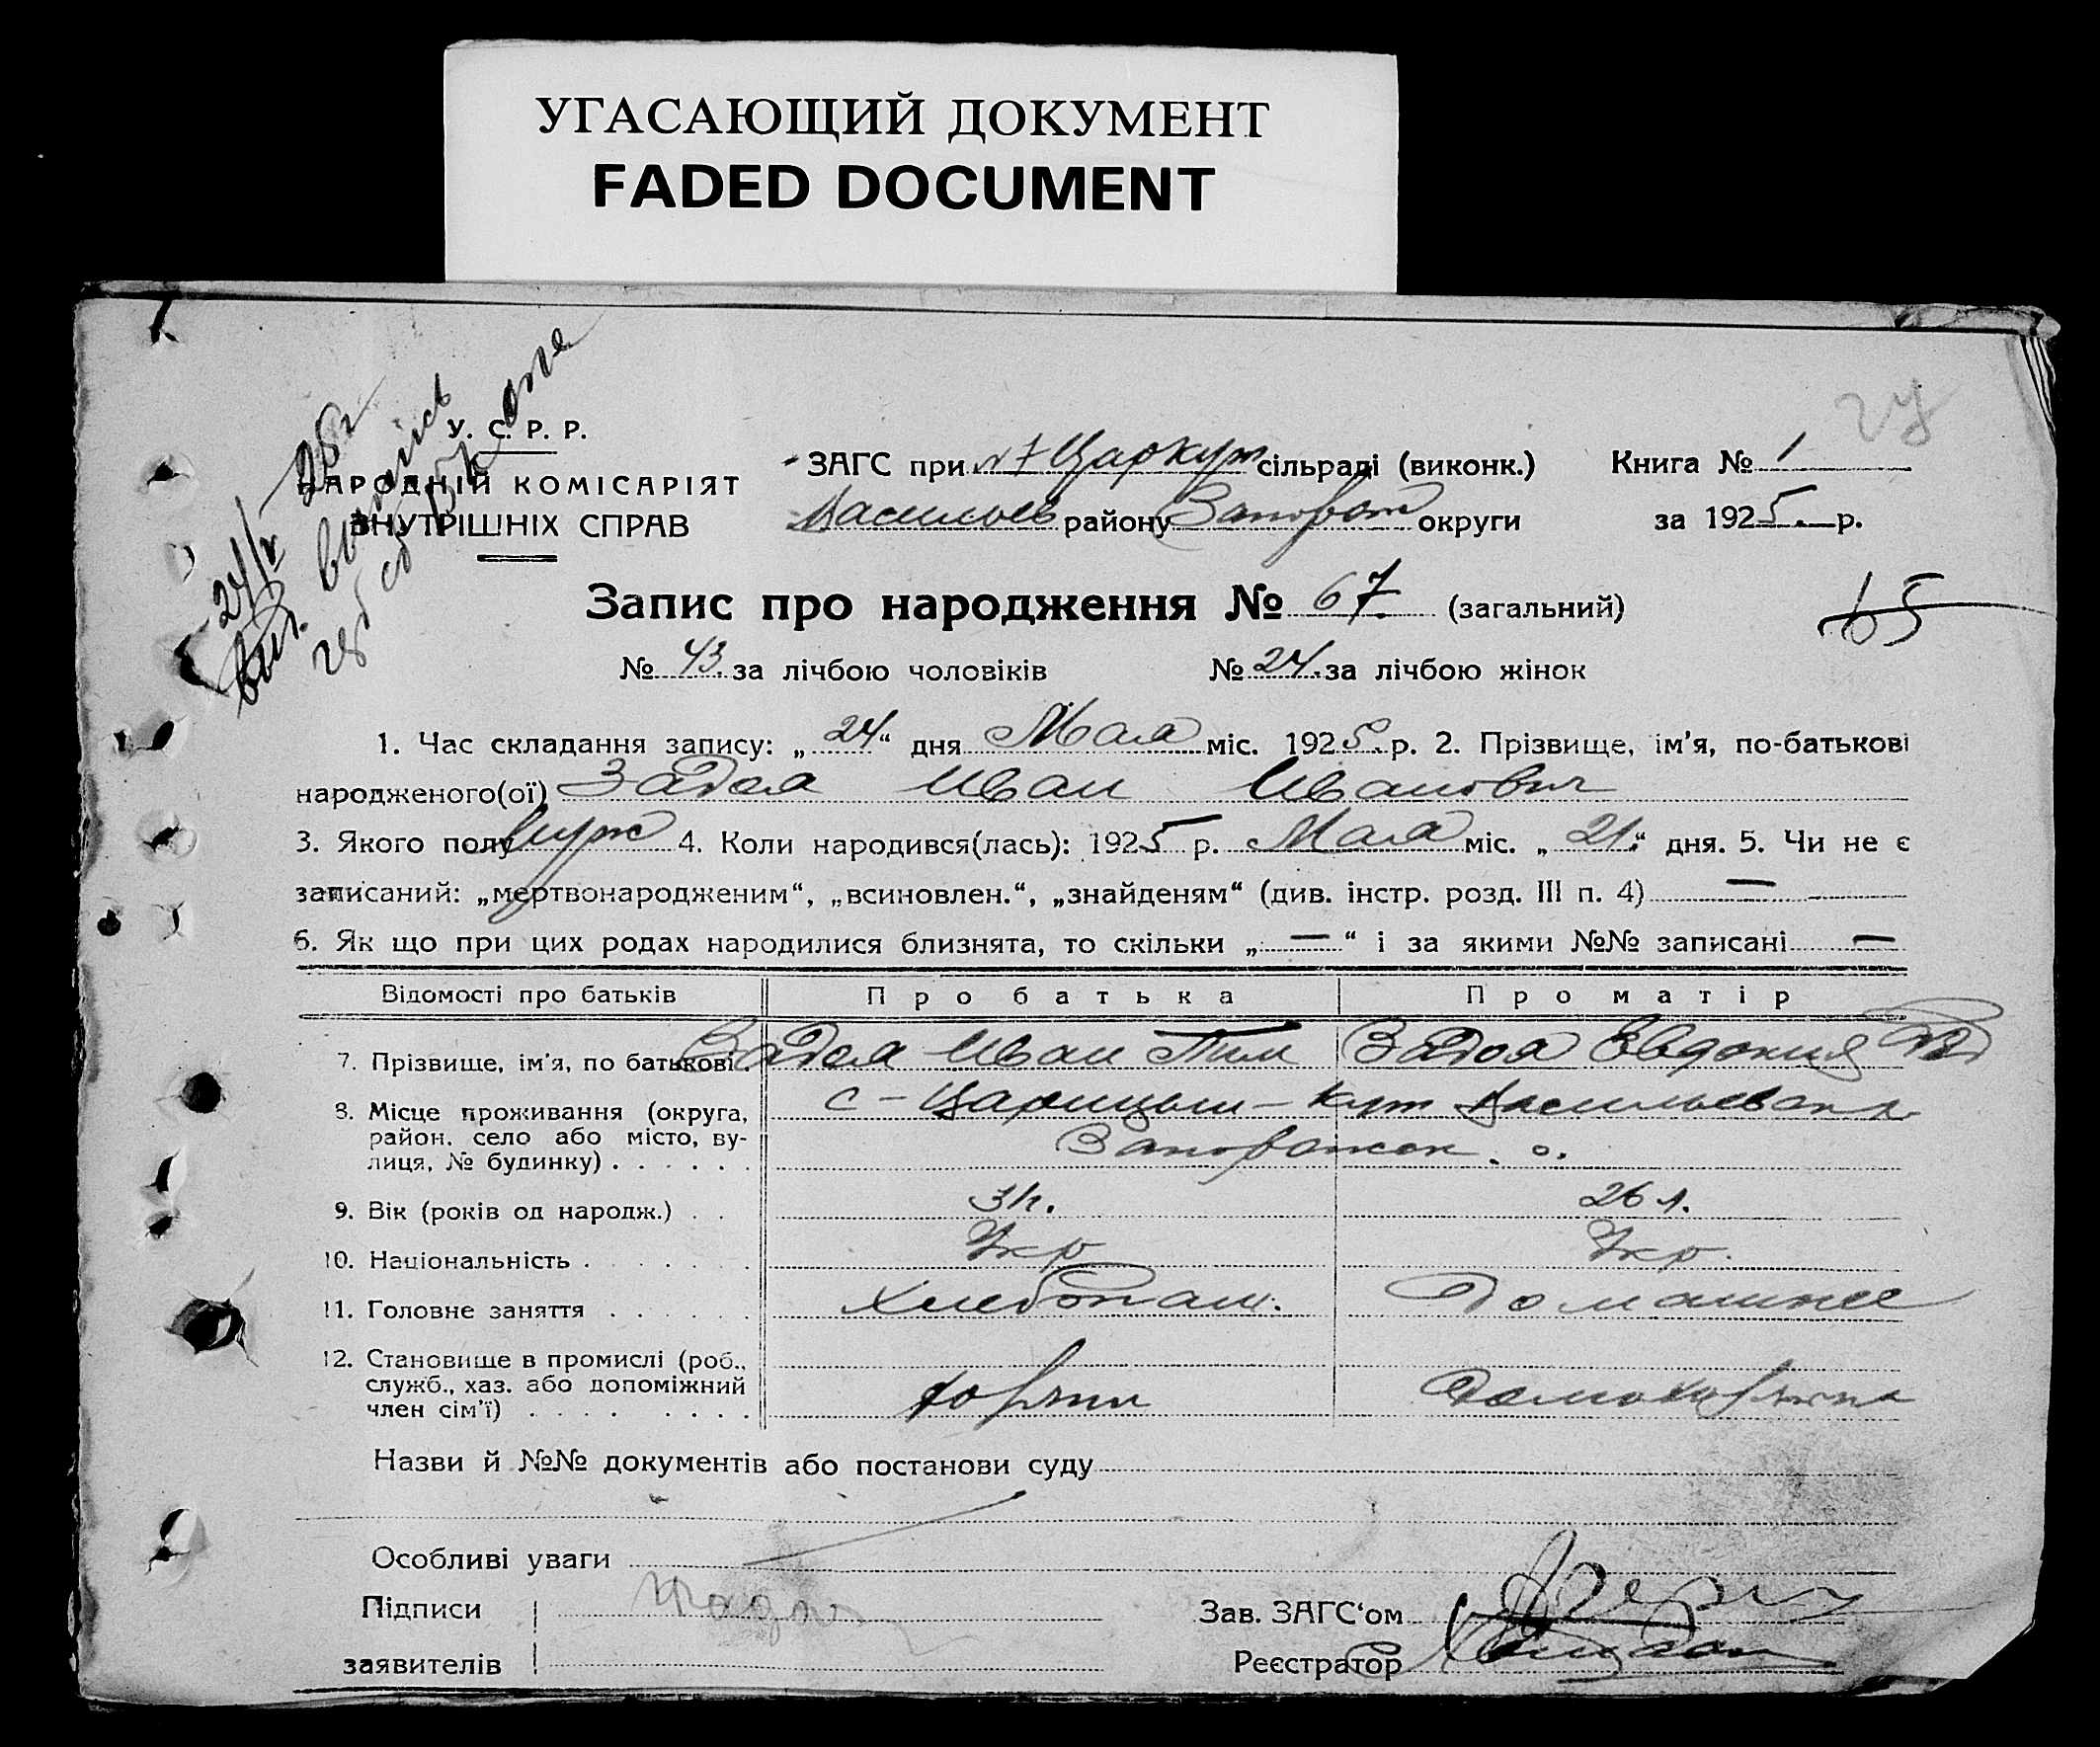 УГАСАЮЩИЙ ДОКУМЕНТ
FADED DOCUMENT
24/V 28 г
вид. выпись
У. С. Р. Р.
НАРОДНІЙ КОМІСАРІЯТ
ВНУТРІШНІХ СПРАВ
ЗАГС при Царкут сільраді (виконк.) Книга № 1
Васильев району Запорож округи за 1925 р.
24
Запис про народження № 67. (загальний)
65
№ 43. за лічбою чоловіків № 24. за лічбою жінок
1. Час складання запису: „24“ дня Мая міс. 1925 р. 2. Прізвище, ім'я, по-батькові
народженого(ої) Задоя Иван Иванович
3. Якого полу муж 4. Коли народився(лась): 1925 р. Мая міс. „21“ дня. 5. Чи не є
записаний: „мертвонародженим“, „всиновлен.“, „знайденям“ (див. інстр. розд. III п. 4) —
6. Як що при цих родах народилися близнята, то скільки „—“ і за якими №№ записані —
Відомості про батьків Про батька Про матір
7. Прізвище, ім'я, по батькові. Задоя Иван Тим Задоя Евдокия
8. Місце проживання (округа, с - Царицын - Кут Васильевск р
район, село або місто, ву-
лиця, № будинку) . . . . . . Запорожск. о.
9. Вік (років од народж.) . . 31 л. 26 л.
10. Національність . . . . . . . Укр Укр.
11. Головне заняття . . . . . . Хлебопаш. Домашнее
12. Становище в промислі (роб.,
служб., хаз. або допоміжний хозяин домохозяйка
член сім'ї) . . . . . . . . .
Назви й №№ документів або постанови суду
Особливі уваги
Підписи
Зав. ЗАГС‘ом
заявителів
Реєстратор